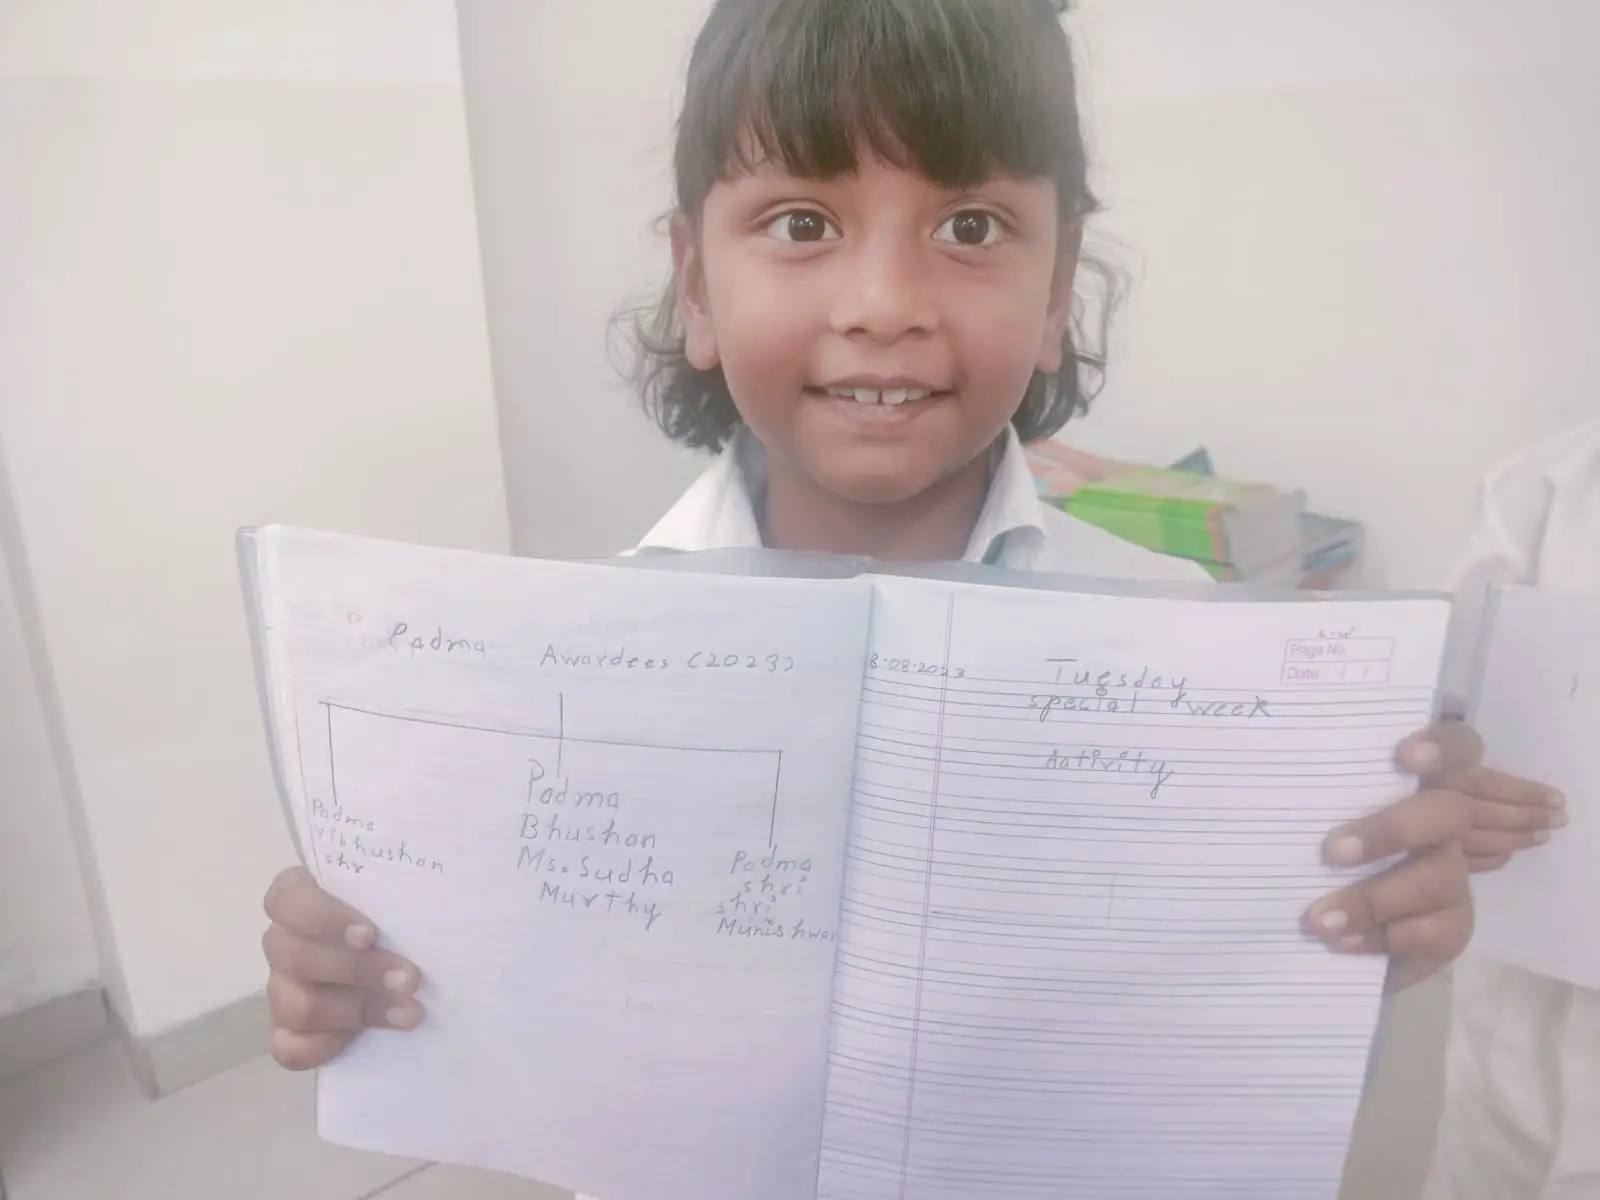 Padma Awardees (2023)
Padma
Vibhushan
shr
Padma
Bhushan
Ms. Sudha
Murthy
Padma
shri
shri
Munishwar
8.08.2023
Tuesday
special week
Activity
C.W
Page No.
Date: / /